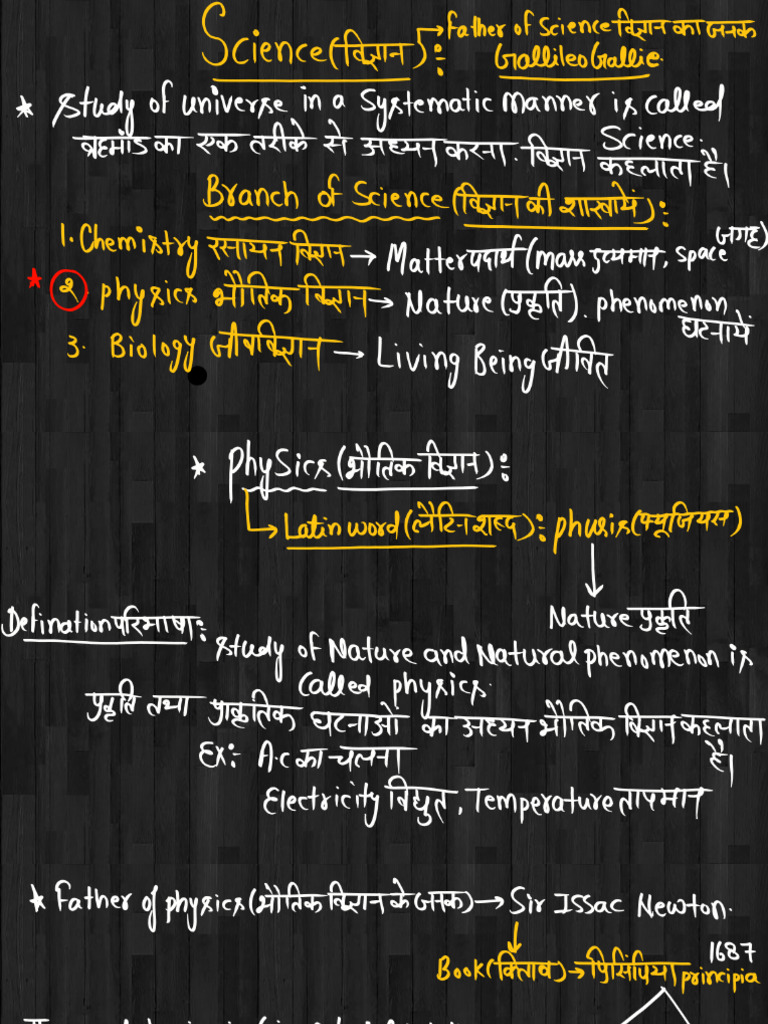 Science (विज्ञान) : → Father of Science विज्ञान का जनक
Gallileo Gallie.
* Study of universe in a Systematic Manner is called Science.
ब्रह्मांड का एक तरीके से अध्यन करना. विज्ञान कहलाता है।
Branch of Science (विज्ञान की शाखायें) :
1. Chemistry रसायन विज्ञान → Matter पदार्थ (mass द्रव्यमान, space जगह)
* २. physics भौतिक विज्ञान → Nature (प्रकृति). phenomenon घटनायें
3. Biology जीवविज्ञान → Living Being जीवित
* Physics (भौतिक विज्ञान) :
→ Latin word (लैटिन शब्द) : phusis (फ्यूजियस)
↓
Nature प्रकृति
Defination परिभाषा : Study of Nature and Natural phenomenon is
Called physics.
प्रकृति तथा प्राकृतिक घटनाओं का अध्यन भौतिक विज्ञान कहलाता है।
Ex:- A.C का चलना
Electricity विद्युत, Temperature तापमान
* Father of physics (भौतिक विज्ञान के जनक) → Sir Issac Newton.
↓
Book (किताब) → प्रिंसिपिया principia 1687